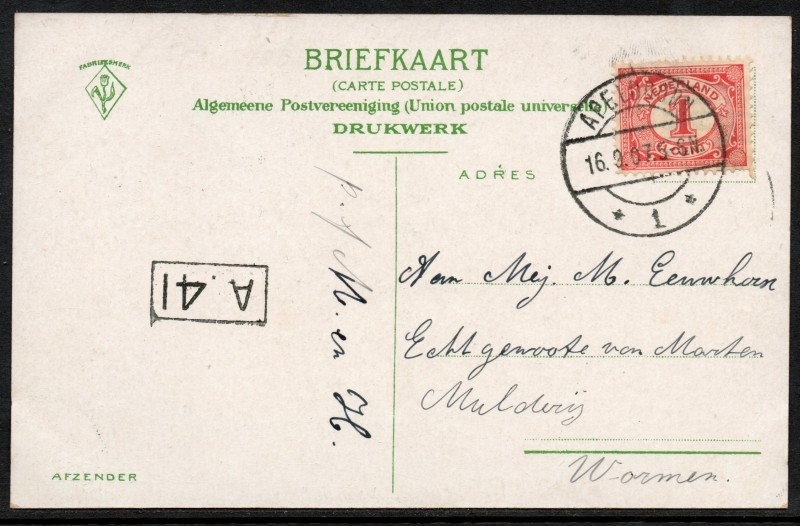 FABRIEKSMERK
BRIEFKAART
(CARTE POSTALE)
Algemeene Postvereeniging (Union postale universelle)
DRUKWERK
ADRES
NEDERLAND
1
APELDOORN
16.9.07.5-6N.
* 1 *
p. f
M. en H.
A.41
Aan Mej. M. Eeuwhorn
Echtgenoote van Marten
Mulderij
Wormen.
AFZENDER